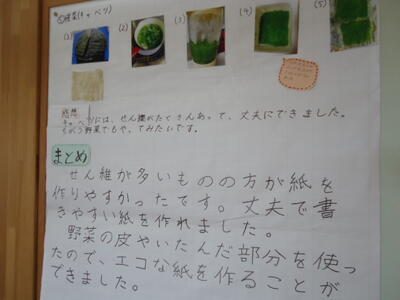 (キャベツ)
(1)
(2)
(3)
(4)
(5)
感想
キャベツには、せん維がたくさんあって、丈夫にできました。
ちがう野菜でもやってみたいです。
まとめ
せん維が多いものの方が紙を
作りやすかったです。丈夫で書
きやすい紙を作れました。
野菜の皮やいたんだ部分を使っ
たので、エコな紙を作ることが
できました。